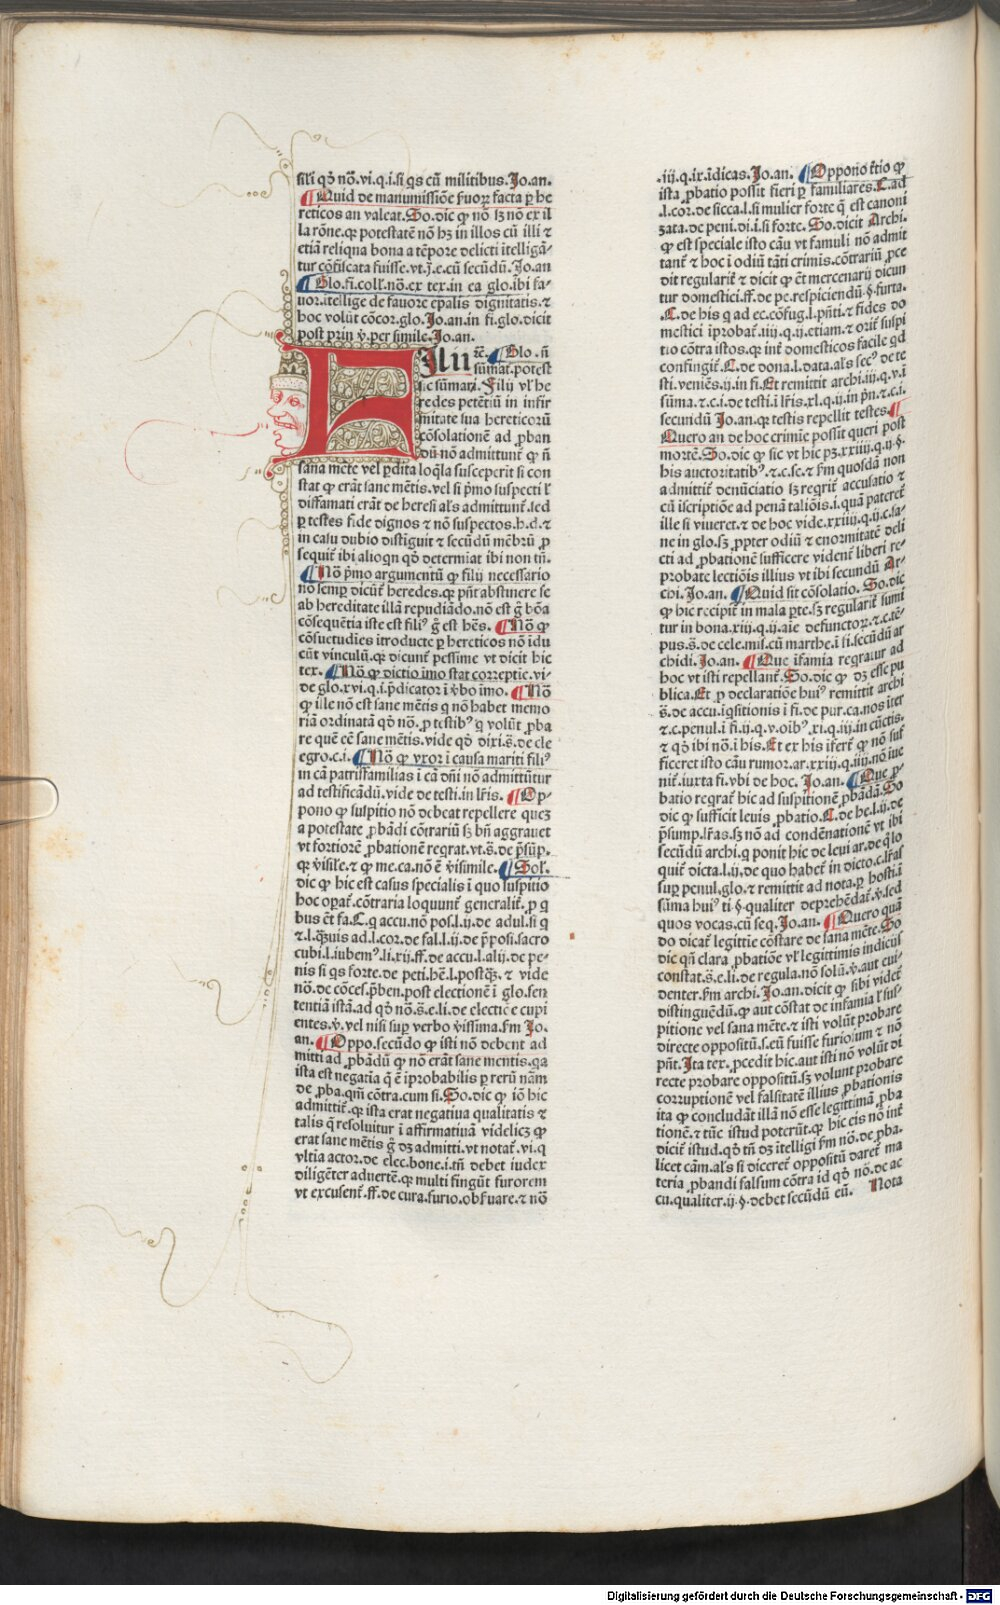 sili qd̓ nō.vi.q.i.si qs cū militibus.Jo.an.
¶Quid de manumissiōe fuor̄ facta ꝑ he
reticos an valeat.So.dic ꝙ nō sꝫ nō ex il
la rōne.qꝛ potestatē nō hꝫ in illos cū illi ⁊
etiā reliqua bona a tēpore delicti ītelligā-
tur cōfiscata fuisse.vt.j̄.e.cū secūdū.Jo.an
¶Glo.fi.coll̓.nō.ex tex.in ea glo.ībi fa-
uor.ītellige de fauore epalis dignitatis.⁊
hoc volūt cōcor.glo.Jo.an.in fi.glo.dicit
post prin v̓.per simile.Jo.an.
Filij
ꝛc̄.¶Glo.fi
sūmat.potest
sic sūmari.Filij vl̓ he
redes petētiū in infir
mitate sua hereticorū
cōsolationē ad ꝓban
dū nō admittunt̓ ꝙ ñ
sana mēte vel ꝑdita loq̄la susceperit si con
stat ꝙ erāt sane mētis.vel si pͥmo suspecti ł
diffamati erāt de heresi als admittunt̓.sed
ꝑ testes fide dignos ⁊ nō suspectos.h.d.⁊
in casu dubio distiguit ⁊ secūdū mēbrū ꝓ
sequit̓ ibi alioqn qd̓ determiat ibi non tn̄.
¶Nō pͥmo argumentū ꝙ filij necessario
no semꝑ dicūt̓ heredes.qꝛ pn̄t abstinere se
ab hereditate illā repudiādo.nō est g̊ bōa
cōsequētia iste est fili⁹ g̊ est hēs.¶Nō ꝙ
cōsuetudies ītroducte ꝑ hereticos nō īdu
cūt vinculū.qꝛ dicunt̓ pessime vt dicit hic
tex.¶Nō ꝙ dictio īmo stat correptie.vi-
de glo.xvi.q.i.p̄dicator ī v̓bo īmo.¶Nō
ꝙ ille nō est sane mētis q nō habet memo
riā ordinatā qd̓ nō.ꝓ testib⁹ q volūt ꝓba
re quē eē sane mētis.vide qd̓ dixi.s̄.de cle
egro.c.i.¶Nō ꝙ vxor ī causa mariti fili⁹
in cā patrisfamilias ī cā dn̄i nō admittūtur
ad testificādū.vide de testi.in lr̄is.¶Op-
pono ꝙ suspitio nō debeat repellere quēꝫ
a potestate ꝓbādi cōtrariū sꝫ bn̄ aggrauet
vt fortiorē ꝓbationē reqrat.vt.s̄.de p̄sūp.
qꝛ v̓isile.⁊ ꝙ me.ca.nō ē v̓isimile.¶Sol̓.
dic ꝙ hic est casus specialis ī quo suspitio
hoc opat̓.cōtraria loquunt̓ generalit̓.ꝓ q
bus ēt fa.C.q accu.nō pos.l.ij.de adul.si q
⁊.l.q̄uis ad.l.cor.de fal.l.ij.de p̄posi.sacro
cubi.l.iubem⁹.li.xij.ff.de accu.l.alij.de pe-
nis si qs forte.de peti.he.l.postq̄ꝫ.⁊ vide
nō.de cōces.p̄ben.post electionē ī glo.sen
tentiā istā.ad qd̓ nō.s̄.e.li.de electiōe cupi
entes.v̓.vel nisi suꝑ verbo v̓issima.fm Jo.
an.¶Oppo.secūdo ꝙ isti nō debent ad
mitti ad ꝓbādū ꝙ nō erāt sane mentis.qa
ista est negatīa q ē īprobabilis ꝑ rerū nām
de ꝓba.qm̄ cōtra.cum si.So.dic ꝙ iō hic
admittit̓.qꝛ ista erat negatiua qualitatis ⁊
talis q̄ resoluitur ī affirmatiuā videlicꝫ ꝙ
erat sane mētis g̊ dꝫ admitti.vt notat̓.vi.q
vltia actor.de elec.bone.i.tn̄ debet iudex
diligēter aduertē.qꝛ multi fingūt furorem
vt excusent̓.ff.de cura.furio.obseruare.⁊ nō
.iij.q.ix.īdicas.Jo.an.¶Oppono t̓tio ꝙ
ista ꝓbatio possit fieri ꝑ familiares.C.ad
.l.cor.de sicca.l.si mulier forte q̄ est canoni
zata.de peni.di.i.si forte.So.dicit Archi.
ꝙ est speciale isto cāu vt famuli nō admit
tant̓ ⁊ hoc ī odiū tāti crimis.cōtrariū ꝓce
dit regularit̓ ⁊ dicit ꝙ ēt mercenarij dicun
tur domestici.ff.de pe.respiciendū.§.furta.
C.de his q ad ec.cōfug.l.pn̄ti.⁊ fides do
mestici īprobat̓.iiij.q.ij.etiam.⁊ orit̓ suspi
tio cōtra istos.qꝛ īnt̓ domesticos facile qd
confingit̓.C.de dona.l.data.als sec⁹ de te
sti.veniēs.ij.in fi.Et remittit archi.iij.q.v.ī
sūma.⁊.c.i.de testi.ī lr̄is.xl.q.ij.in pn̄.⁊.c.i.
secundū Jo.an.qꝛ testis repellit testes.¶
Quero an de hoc crimīe possit queri post
mortē.So.dic ꝙ sic vt hic pꝫ.xxiiij.q.ij.§.
his auctoritatib⁹.⁊.c.sc.⁊ fm quosdā non
admittit̓ denūciatio sꝫ reqrit̓ accusatio ⁊
cū īscriptiōe ad penā taliōis.i.quā pateret̓
ille si viueret.⁊ de hoc vide.xxiiij.q.ij.c.sa-
ne in glo.sꝫ ꝓpter odiū ⁊ enormitatē deli
cti ad ꝓbationē sufficere vident̓ liberi re-
probate lectiōis illius vt ibi secundū Ar-
chi.Jo.an.¶Quid sit cōsolatio.So.dic
ꝙ hic recipit̓ in mala ꝑte.sꝫ regularit̓ sumi
tur in bona.xiij.q.ij.aīe defunctoꝝ.⁊.c.tē-
pus.s̄.de cele.mis.cū marthe.ī si.secūdū ar
chidi.Jo.an.¶Que īfamia reqratur ad
hoc vt isti repellant̓.So.dic ꝙ dꝫ esse pu
blica.Et ꝓ declaratiōe hui⁹ remittit archi
s̄.de accu.īqsitionis ī fi.de pur.ca.nos īter
⁊.c.penul.ī fi.ij.q.v.oīb⁹.xi.q.iij.in cūctis.
⁊ qd̓ ibi nō.ī his.Et ex his īfert̓ ꝙ nō suf
ficeret isto cāu rumor.ar.xxij.q.iiij.nō iue
nit̓.iuxta fi.vbi de hoc.Jo.an.¶Que ꝓ-
batio reqrat̓ hic ad suspitionē ꝓbādā.So
dic ꝙ sufficit leuis ꝓbatio.C.de he.l.ij.de
p̄sump.lr̄as.sꝫ nō ad condēnationē vt ibi
secūdū archi.q ponit hic de leui ar.de q̊ lo
quit̓ dicta.l.ij.de quo habet̓ in dicto.c.lr̄as
suꝑ penul.glo.⁊ remittit ad nota.ꝑ hosti.ī
sūma hui⁹ ti.§.qualiter deprehēdat̓.v̓.sed
quos vocas.cū seq.Jo.an.¶Quero quā
do dicat̓ legittie cōstare de sana mēte.So
dic qn̄ clara ꝓbatiōe vl̓ legittimis indicijs
constat.s̄.e.li.de regula.nō solū.v̓.aut eui-
denter.fm archi.Jo.an.dicit ꝙ sibi videt̓
distinguēdū.ꝙ aut cōstat de infamia ł sus-
pitione vel sana mēte.⁊ isti volūt probare
directe oppositū.s.eū fuisse furiosum ⁊ nō
pn̄t.Ita tex.ꝓcedit hic.aut isti nō volūt di
recte probare oppositū.sꝫ volunt probare
corruptionē vel falsitatē illius ꝓbationis
ita ꝙ concludāt illā nō esse legittimā ꝓba
tionē.⁊ tūc istud poterūt.qꝛ hic eis nō int̓
dicit̓ istud.qd̓ tn̄ dꝫ ītelligi fm nō.de ꝓba.
licet cām.als si diceret̓ oppositū daret̓ ma
teria ꝓbandi falsum cōtra id qd̓ nō.de ac
cu.qualiter.ij.§.debet secūdū eū. Nota
Digitalisierung gefördert durch die Deutsche Forschungsgemeinschaft - DFG